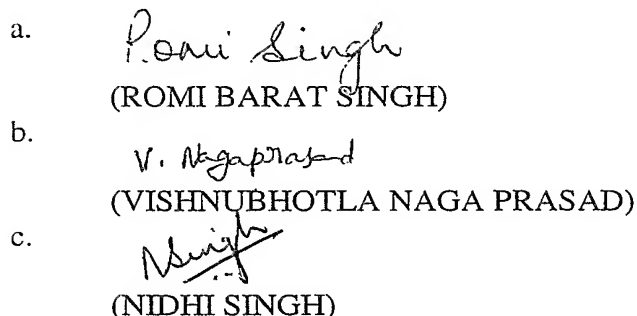 a.
Romi Singh
(ROMI BARAT SINGH)
b.
V. Nagaprasad
(VISHNUBHOTLA NAGA PRASAD)
c.
NSingh
(NIDHI SINGH)